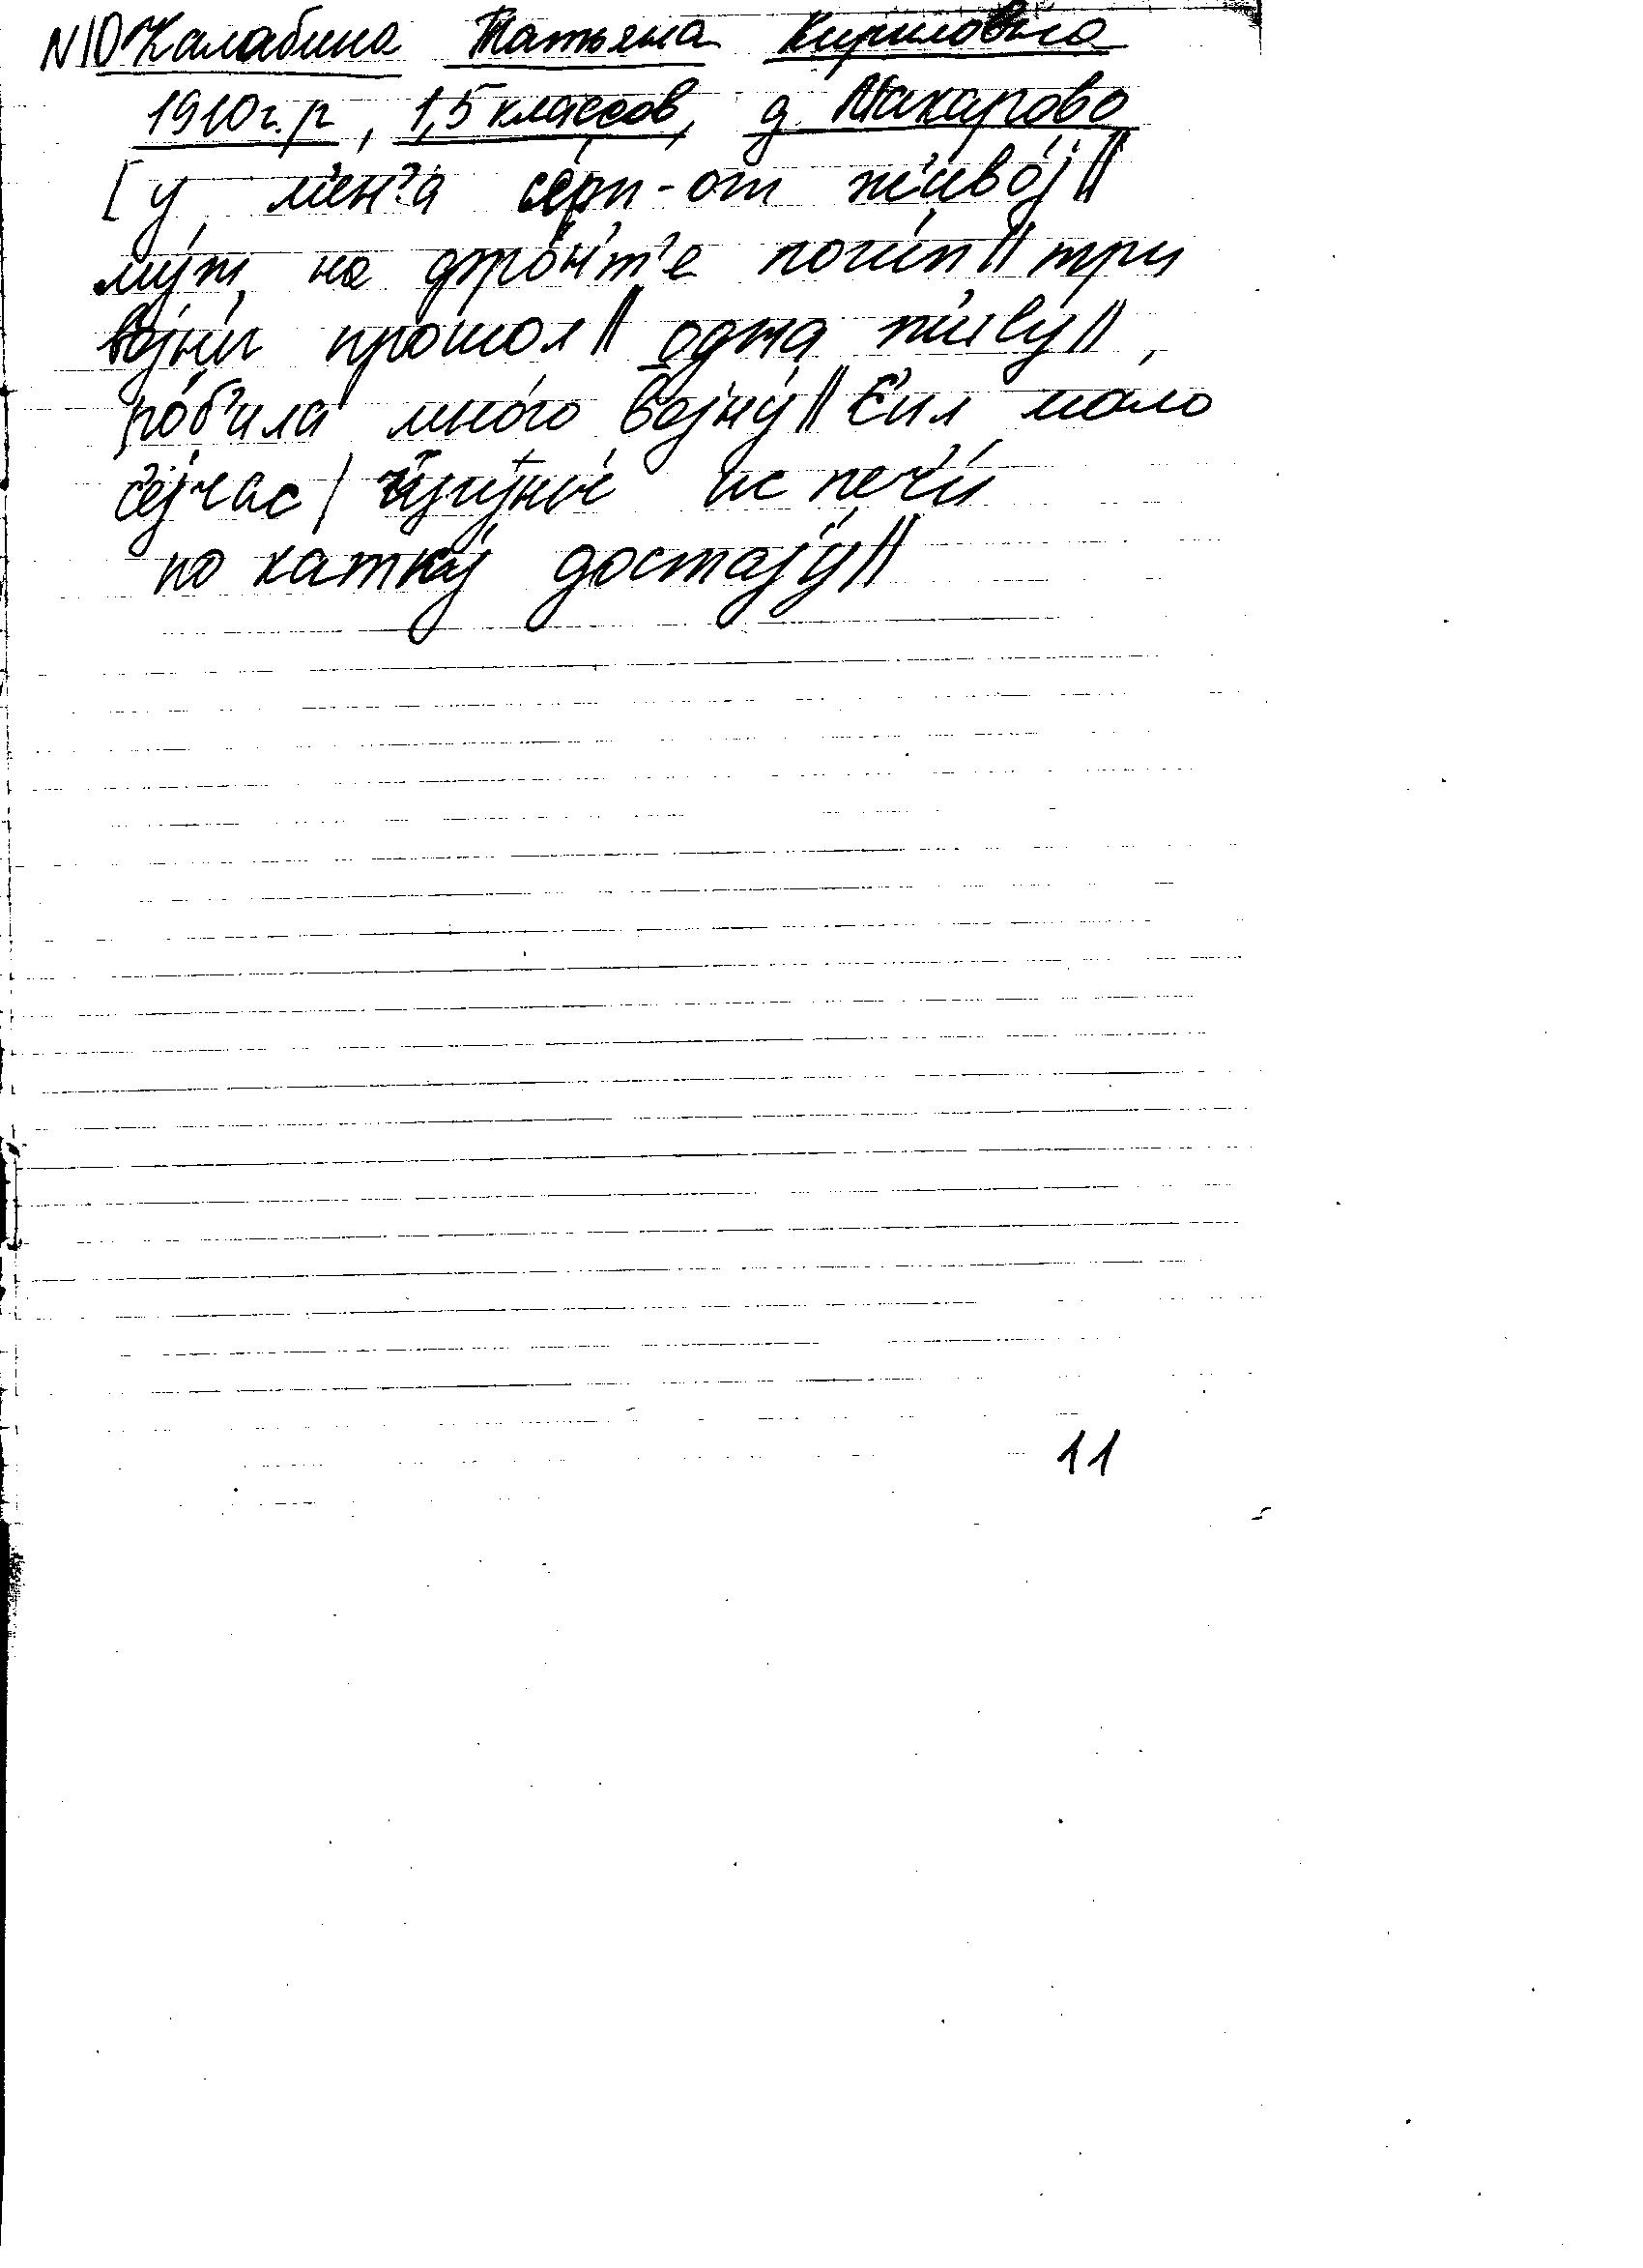 N10 Калабина Татьяна Кириловна
1910г.р, 1,5 классов, д. Макарово
[у мен'а серп-от жывој||
муж на фрон'т'е погип|| три
војны прошол|| одна жыву||,
роб'ила много војну|| с'ил мало
сејчас| чугуны ис печи
по катку достају||
11